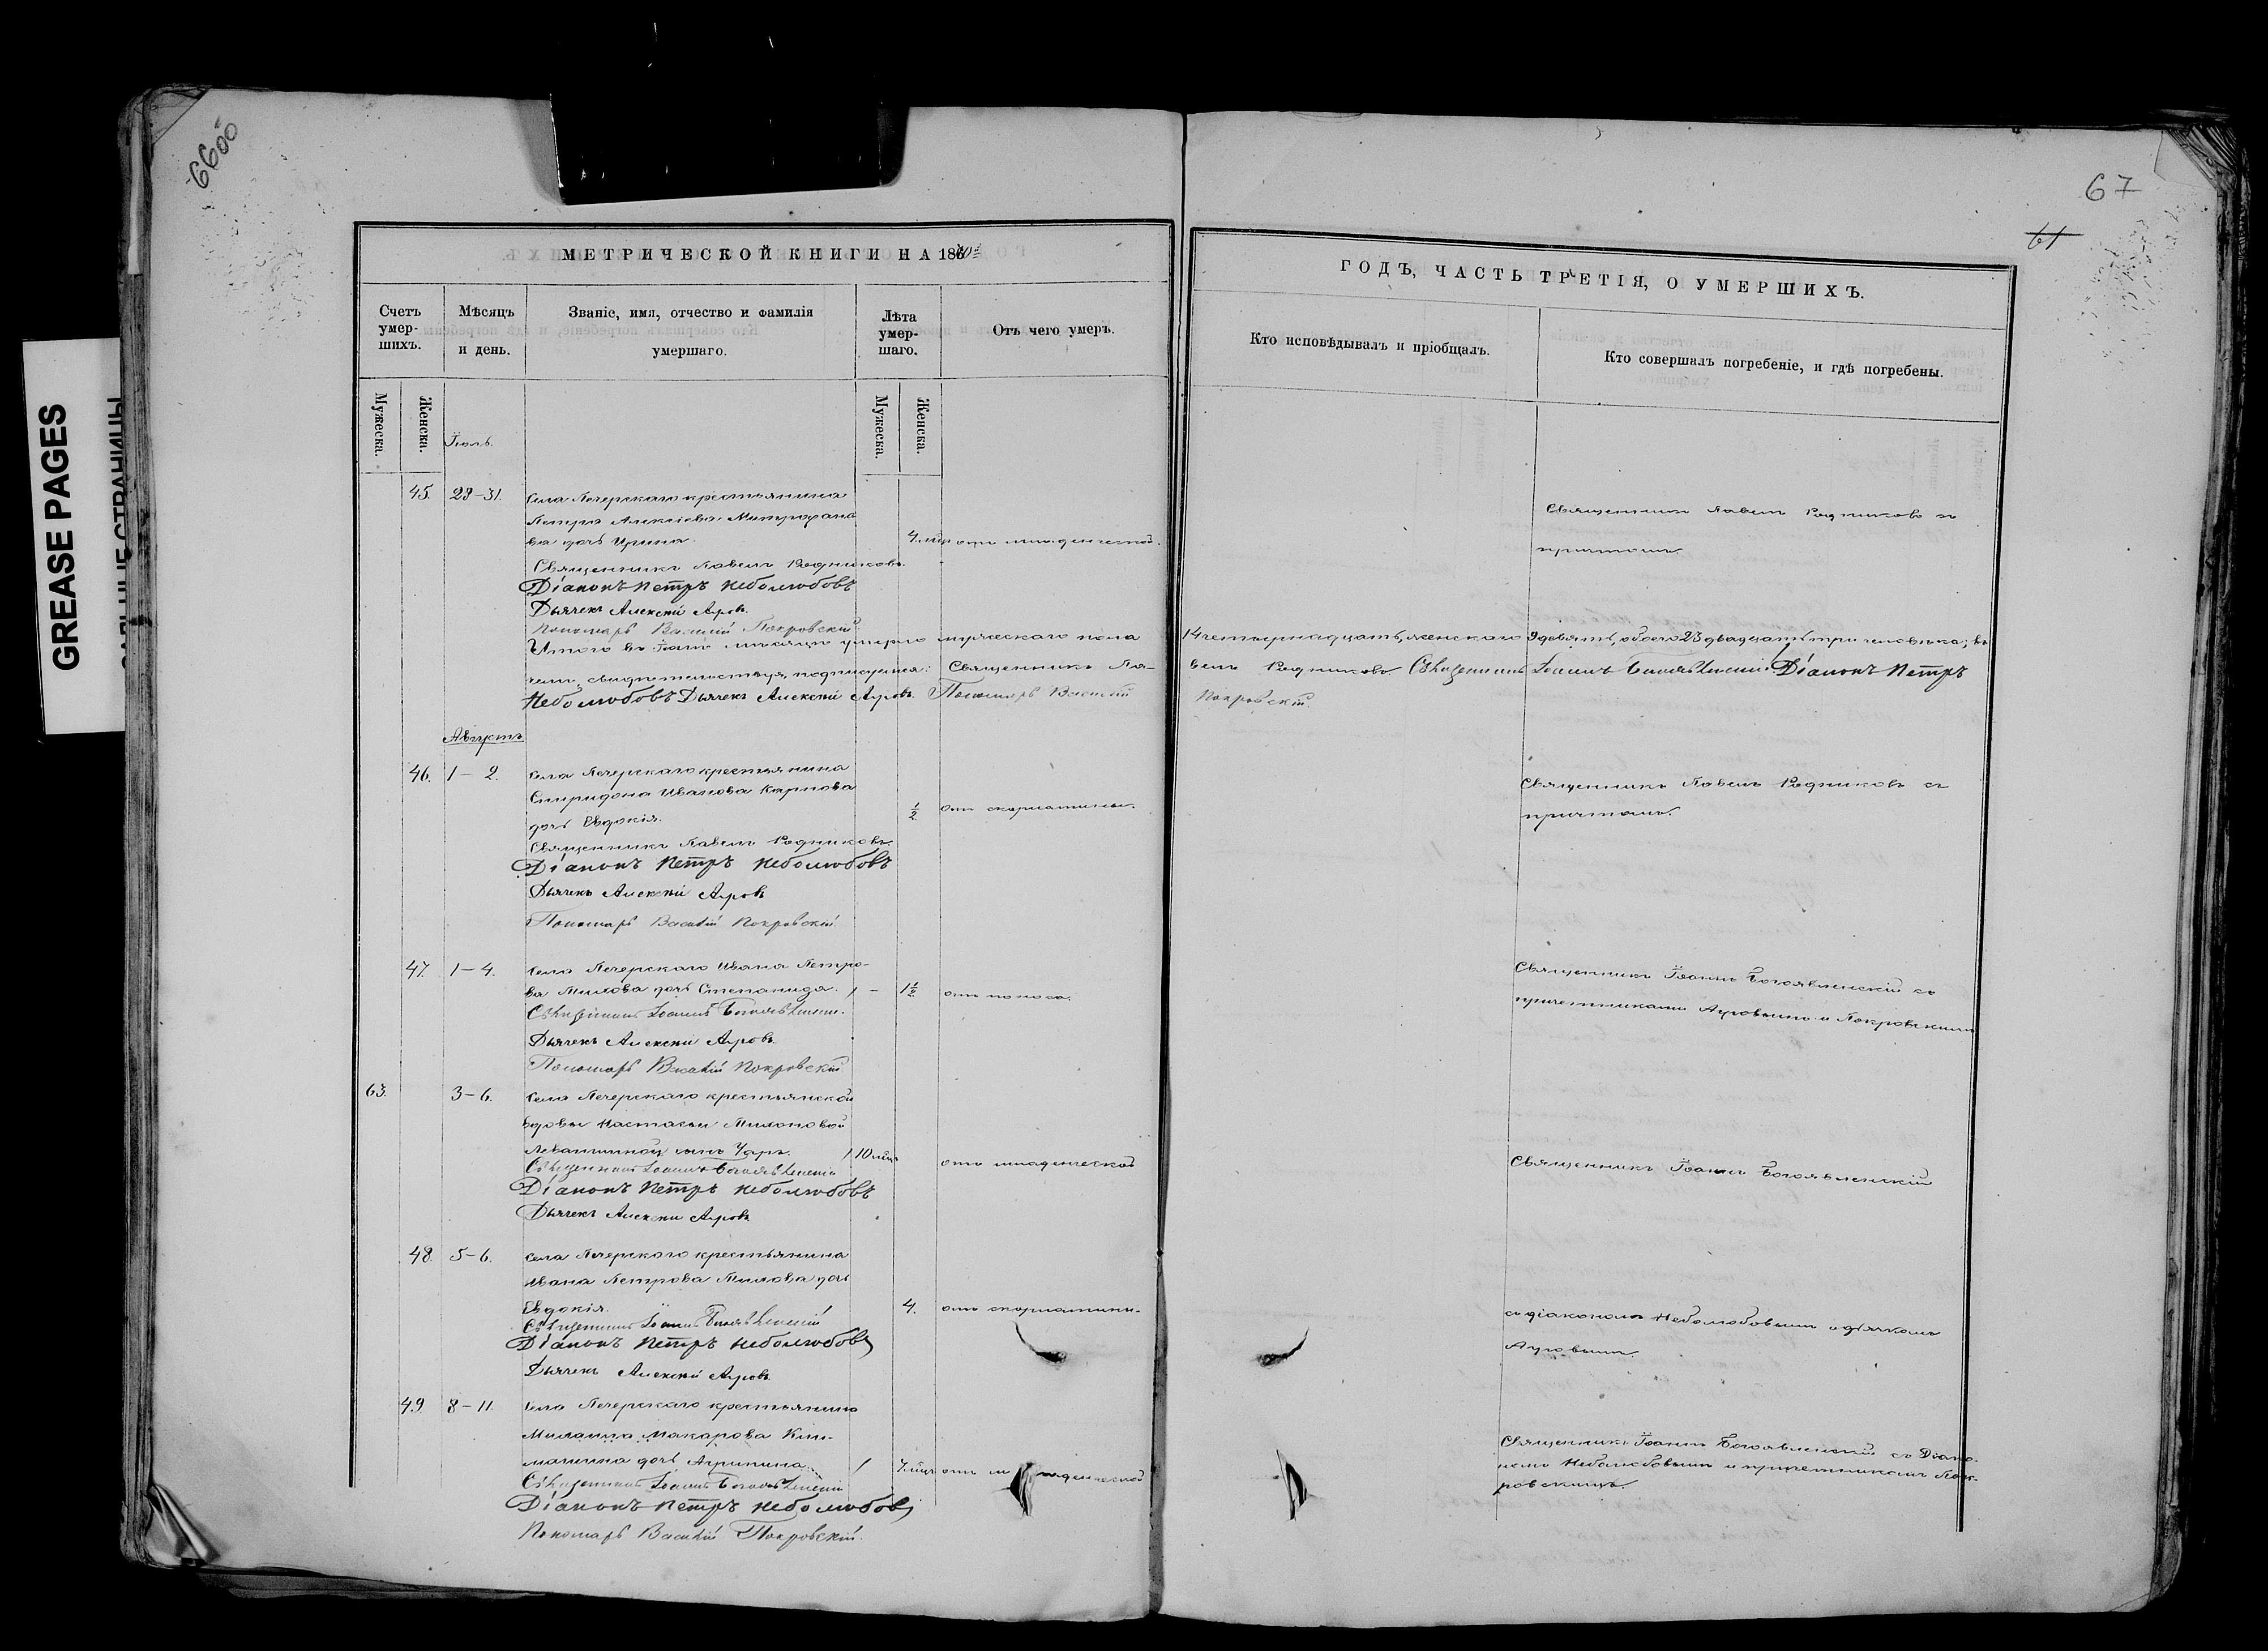 GREASE PAGES
САЛЬНЫЕ СТРАНИЦЫ
67
61
МЕТРИЧЕСКОЙ КНИГИ НА 186
ГОДЪ, ЧАСТЬ ТРЕТІЯ, О УМЕРШИХЪ.
Счетъ умер-шихъ.
Мѣсяцъ и день.
Званіе, имя, отчество и фамилія умершаго.
Лѣта умер-шаго.
Отъ чего умеръ.
Кто исповѣдывалъ и пріобщалъ.
Кто совершалъ погребеніе, и гдѣ погребены.
Мужеска.
Женска.
Мужеска.
Женска.
Іюль.
45. 29-31. Села Печерскаго крестьянина
Петра Алексіева Митрофано
ва дочь Ирина. 4. мѣс отъ младенческой.
Священникъ Павелъ Родниковъ съ
причтомъ.
Священникъ Павелъ Родниковъ.
Діаконъ Петръ Неболюбовъ
Дьячекъ Алексѣй Ауровъ.
Пономарь Василій Покровскій.
Итого въ Іюлѣ мѣсяцѣ умерло мужескаго пола 14 четырнадцать, женскаго 9 девять, обоего 23 двадцать три человѣка; въ
чемъ, свидѣтельствуя, подписуемся: Священникъ Па-велъ Родниковъ. Священникъ Іоаннъ Богоявленскій. Діаконъ Петръ
Неболюбовъ Дьячекъ Алексѣй Ауровъ. Пономарь Василій Покровскій.
Августъ
46. 1-2. Села Печерскаго крестьянина
Спиридона Иванова Карпова
дочь Евдокія. 1/2 отъ скорлатины.
Священникъ Павелъ Родниковъ съ
причтомъ.
Священникъ Павелъ Родниковъ.
Діаконъ Петръ Неболюбовъ
Дьячекъ Алексѣй Ауровъ
Пономарь Василій Покровскій.
47. 1-4. Села Печерскаго Ивана Петро-
ва Милова дочь Степанида. 1 1/2 отъ поноса.
Священникъ Іоаннъ Богоявленскій съ
причетниками Ауровымъ и Покровскимъ
Священникъ Іоаннъ Богоявленскій.
Дьячекъ Алексѣй Ауровъ.
Пономарь Василій Покровскій
63. 3-6. Села Печерскаго крестьянской
вдовы Настасьи
сынъ 10 мѣс отъ младенческой
Священникъ Іоаннъ Богоявленскій
Священникъ Іоаннъ Богоявленскій
Діаконъ Петръ Неболюбовъ
Дьячекъ Алексѣй Ауровъ
48. 5-6. Села Печерскаго крестьянина
Ивана Петрова Милова дочь
Евдокія. 4. отъ скорлатины.
съ діакономъ Неболюбовымъ и дьячкомъ
Ауровымъ.
Священникъ Іоаннъ Богоявленскій
Діаконъ Петръ Неболюбовъ
Дьячекъ Алексѣй Ауровъ.
49. 8-11. Села Печерскаго крестьянина
Макарова
дочь Агрипина. 7 мѣс отъ младенческой
Священникъ Іоаннъ Богоявленскій съ Діако-
номъ Неболюбовымъ и причетникомъ Пок-
ровскимъ.
Священникъ Іоаннъ Богоявленскій
Діаконъ Петръ Неболюбовъ
Пономарь Василій Покровскій.